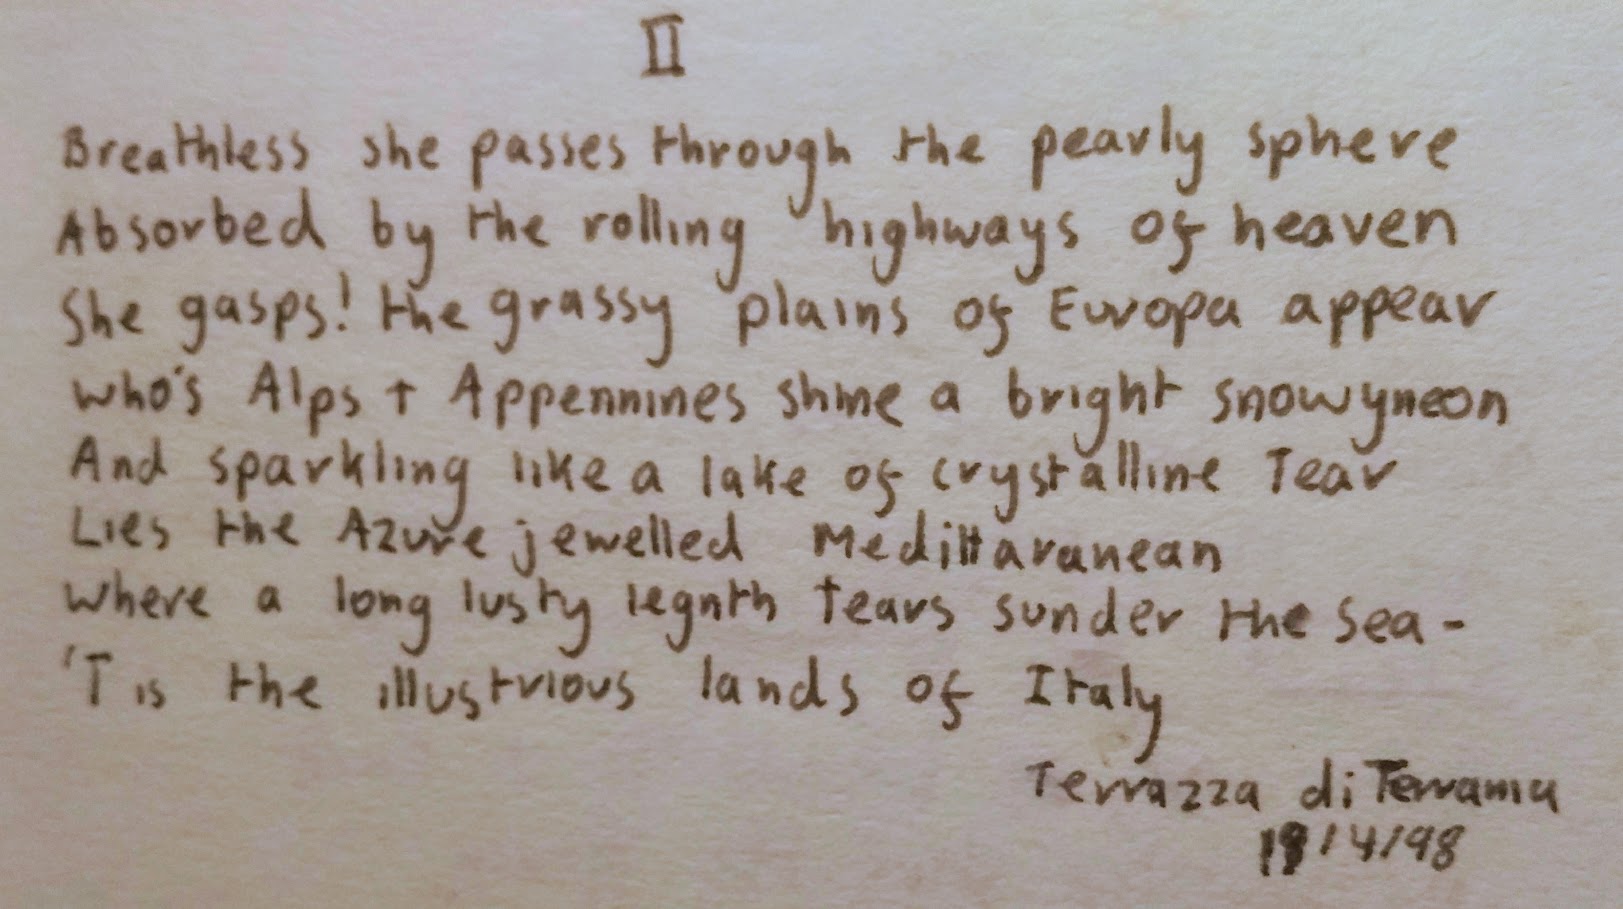 II
Breathless she passes through the pearly sphere
Absorbed by the rolling highways of heaven
She gasps! the grassy plains of Europa appear
who's Alps + Appennines shine a bright snowyneon
And sparkling like a lake of crystalline Tear
Lies the Azure jewelled Medittaranean
where a long lusty legnth tears sunder the sea -
'Tis the illustrious lands of Italy
Terrazza di
/4/98